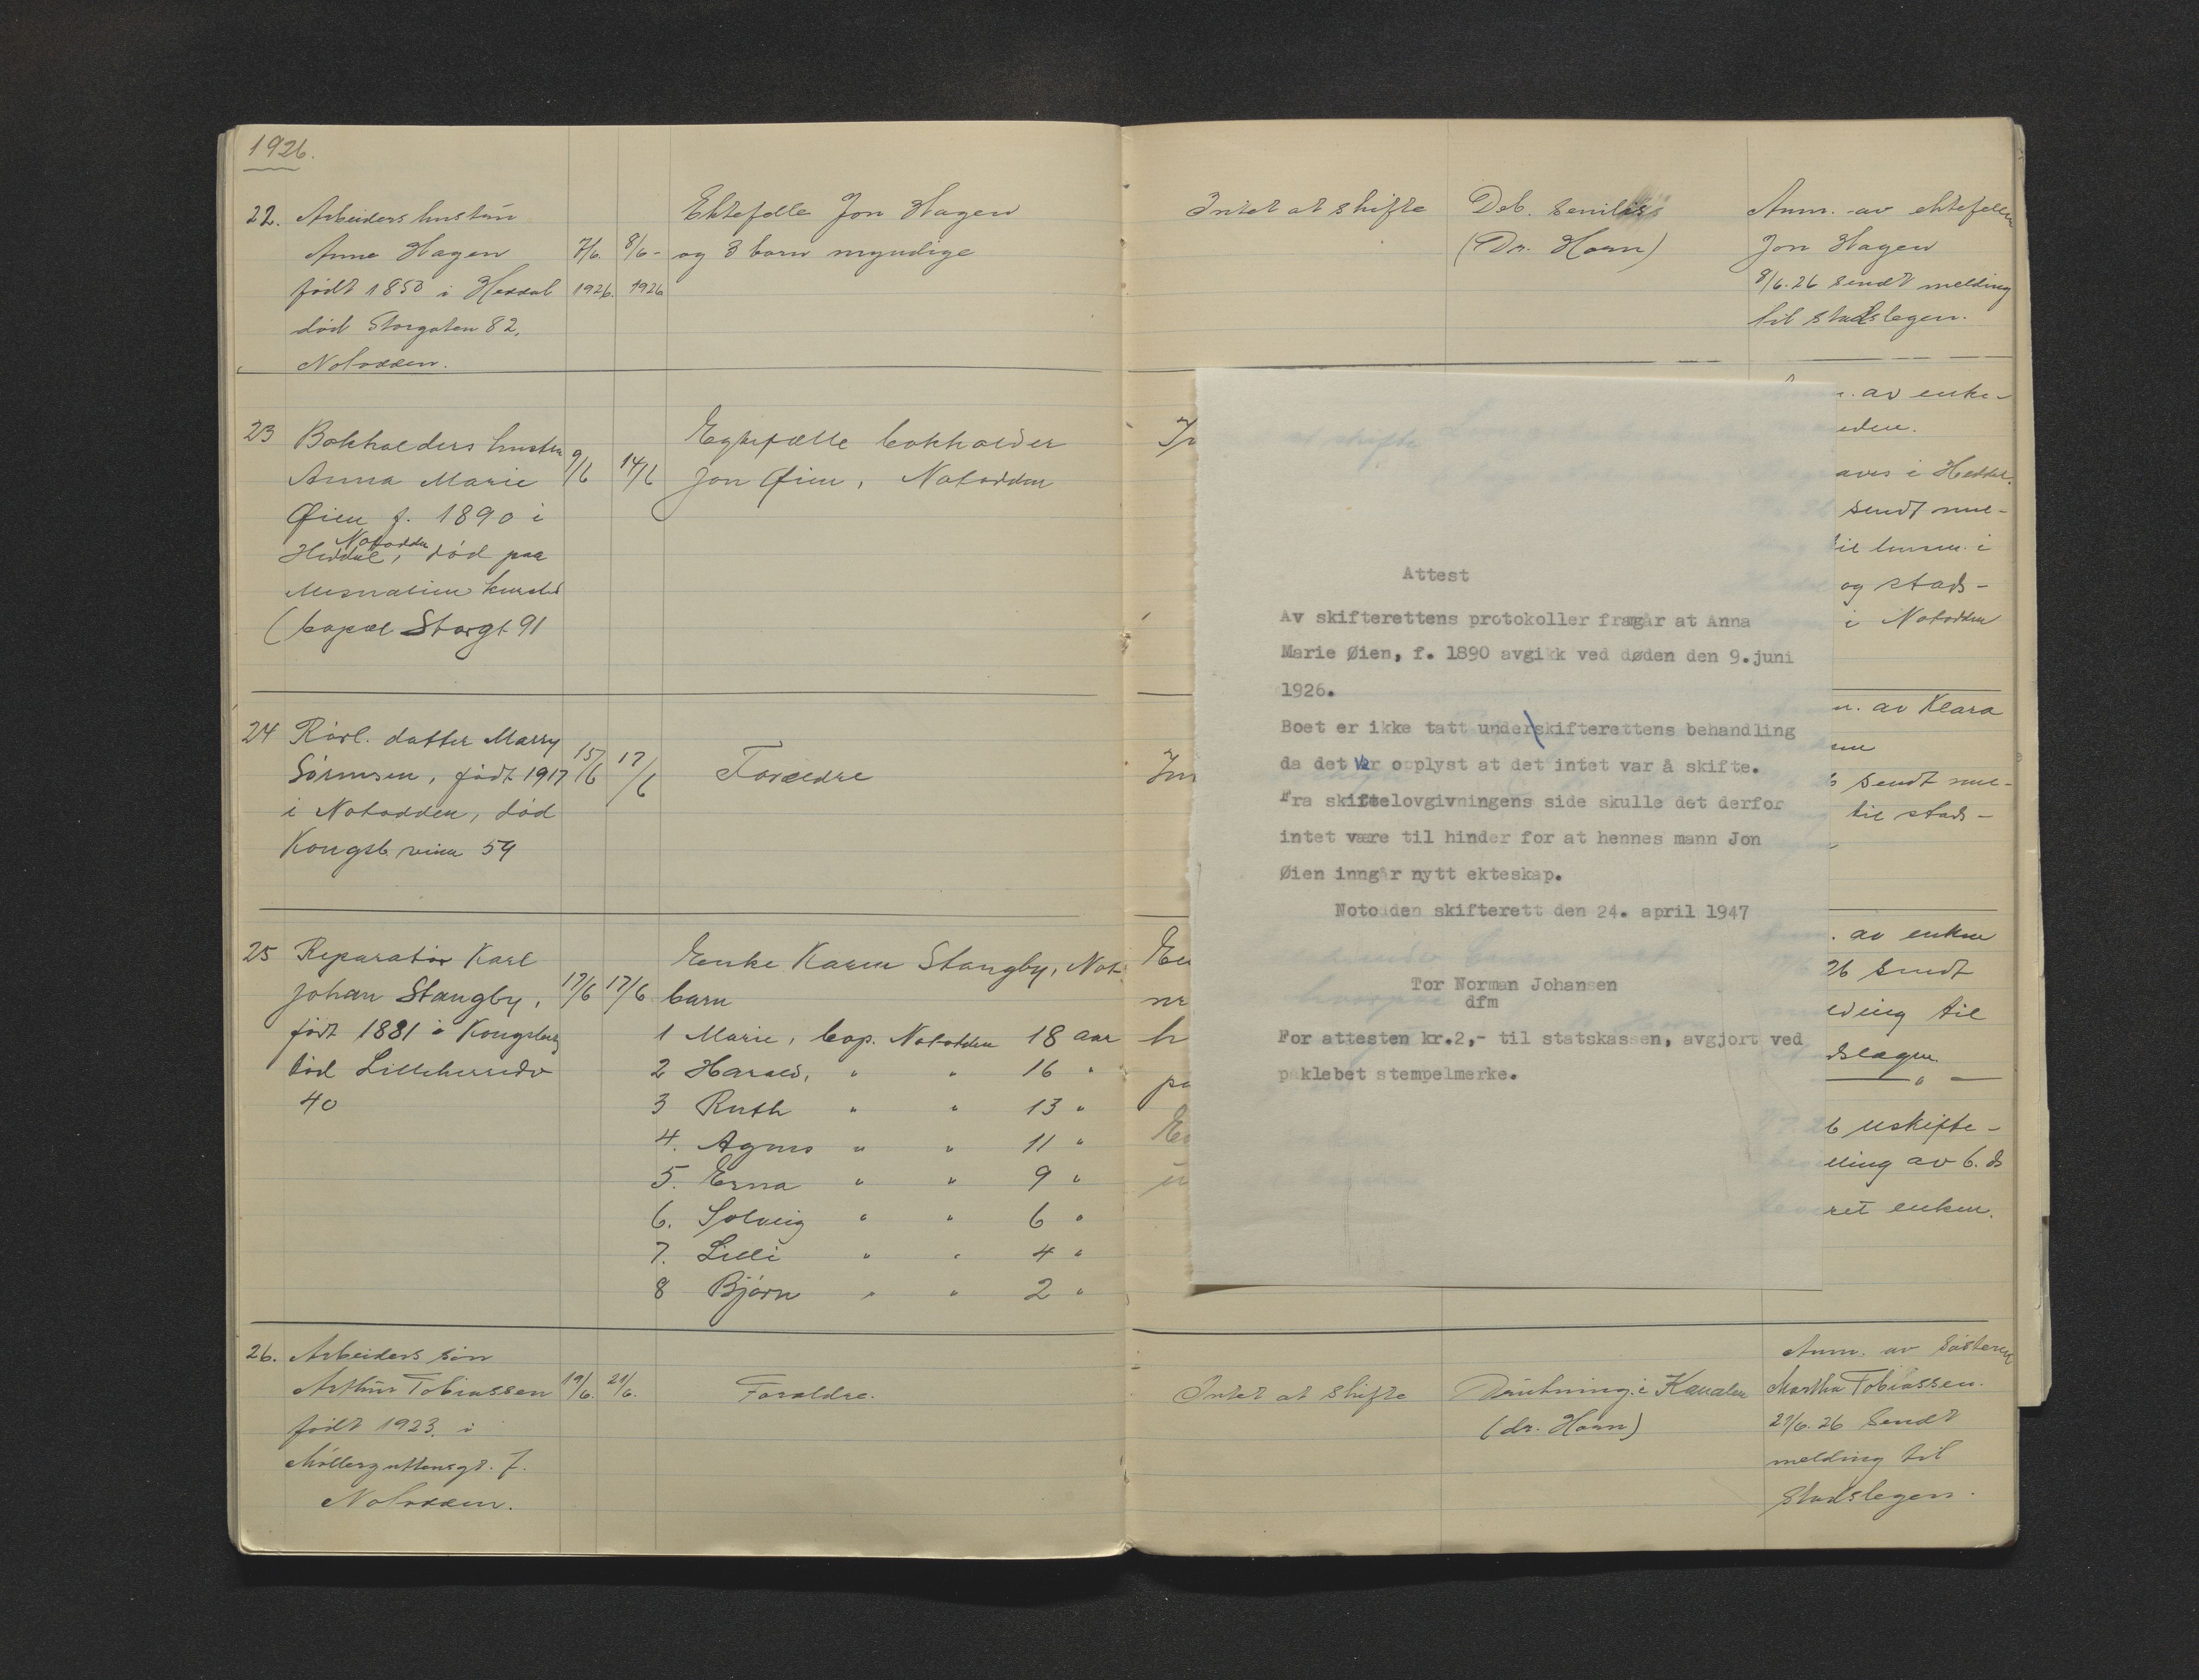 1926.
22. Arbeiders hustru
Anne Hagen
født 1850 i Heddal
død Storgaten 82,
Notodden.
7/6. 1926.
8/6- 1926
Ektefelle Jon Hagen
og 3 barn myndige
Intet at skifte
Deb. senilis
(Dr. Horn)
Anm. av ektefellen
Jon Hagen
8/6.26 sendt melding
til stadslegen.
23 Bokholders hustru
Anna Marie
Øien f. 1890 i
Notodden
Heddal, død paa
(bopæl Storgt 91
9/6
14/6
Egtefælle bokholder
Jon Øien, Notodden
In
. av enke-
eden.
aves i Heddal.
sendt mel-
til lensm. i
og stads-
i Notodden
24 Rørl. datter Marry
Sørensen, født 1917
i Notodden, død
Kongsb.veien 59
15/6
17/6
Forældre
Int
m. av Klara
sendt mel-
til stads-
25 Reparatør Karl
Johan Stangby,
født 1881 i Kongsberg
død Lilleherredv
40
17/6
17/6
Enke Karen Stangby, Not.
barn
1 Marie, bop. Notodden 18 aar
2 Harald, " " 16 "
3 Ruth " " 13 "
4. Agnes " " 11 "
5. Erna " " 9 "
6. Solveig " " 6 "
7. Lilli " " 4 "
8 Bjørn " " 2 "
En
. av enken
26 sendt
elding til
dslægen
6 uskifte-
lling av 6. ds
ret enken.
Attest
Av skifterettens protokoller fragår at Anna
Marie Øien, f. 1890 avgikk ved døden den 9.juni
1926.
Boet er ikke tatt under skifterettens behandling
da det var opplyst at det intet var å skifte.
Fra skiftelovgivningens side skulle det derfor
intet være til hinder for at hennes mann Jon
Øien inngår nytt ekteskap.
Notodden skifterett den 24. april 1947
Tor Norman Johansen
dfm
For attesten kr.2,- til statskassen, avgjort ved
påklebet stempelmerke.
26. Arbeiders søn
Arthur Tobiassen
født 1923. i
Møllerguttensgt. 7.
Notodden.
19/6.
21/6.
Forældre.
Intet at skifte
Drukning i Kanalen
(dr. Horn)
Anm. av søsteren
Martha Tobiassen.
21/6.26 sendt
melding til
stadslegen.